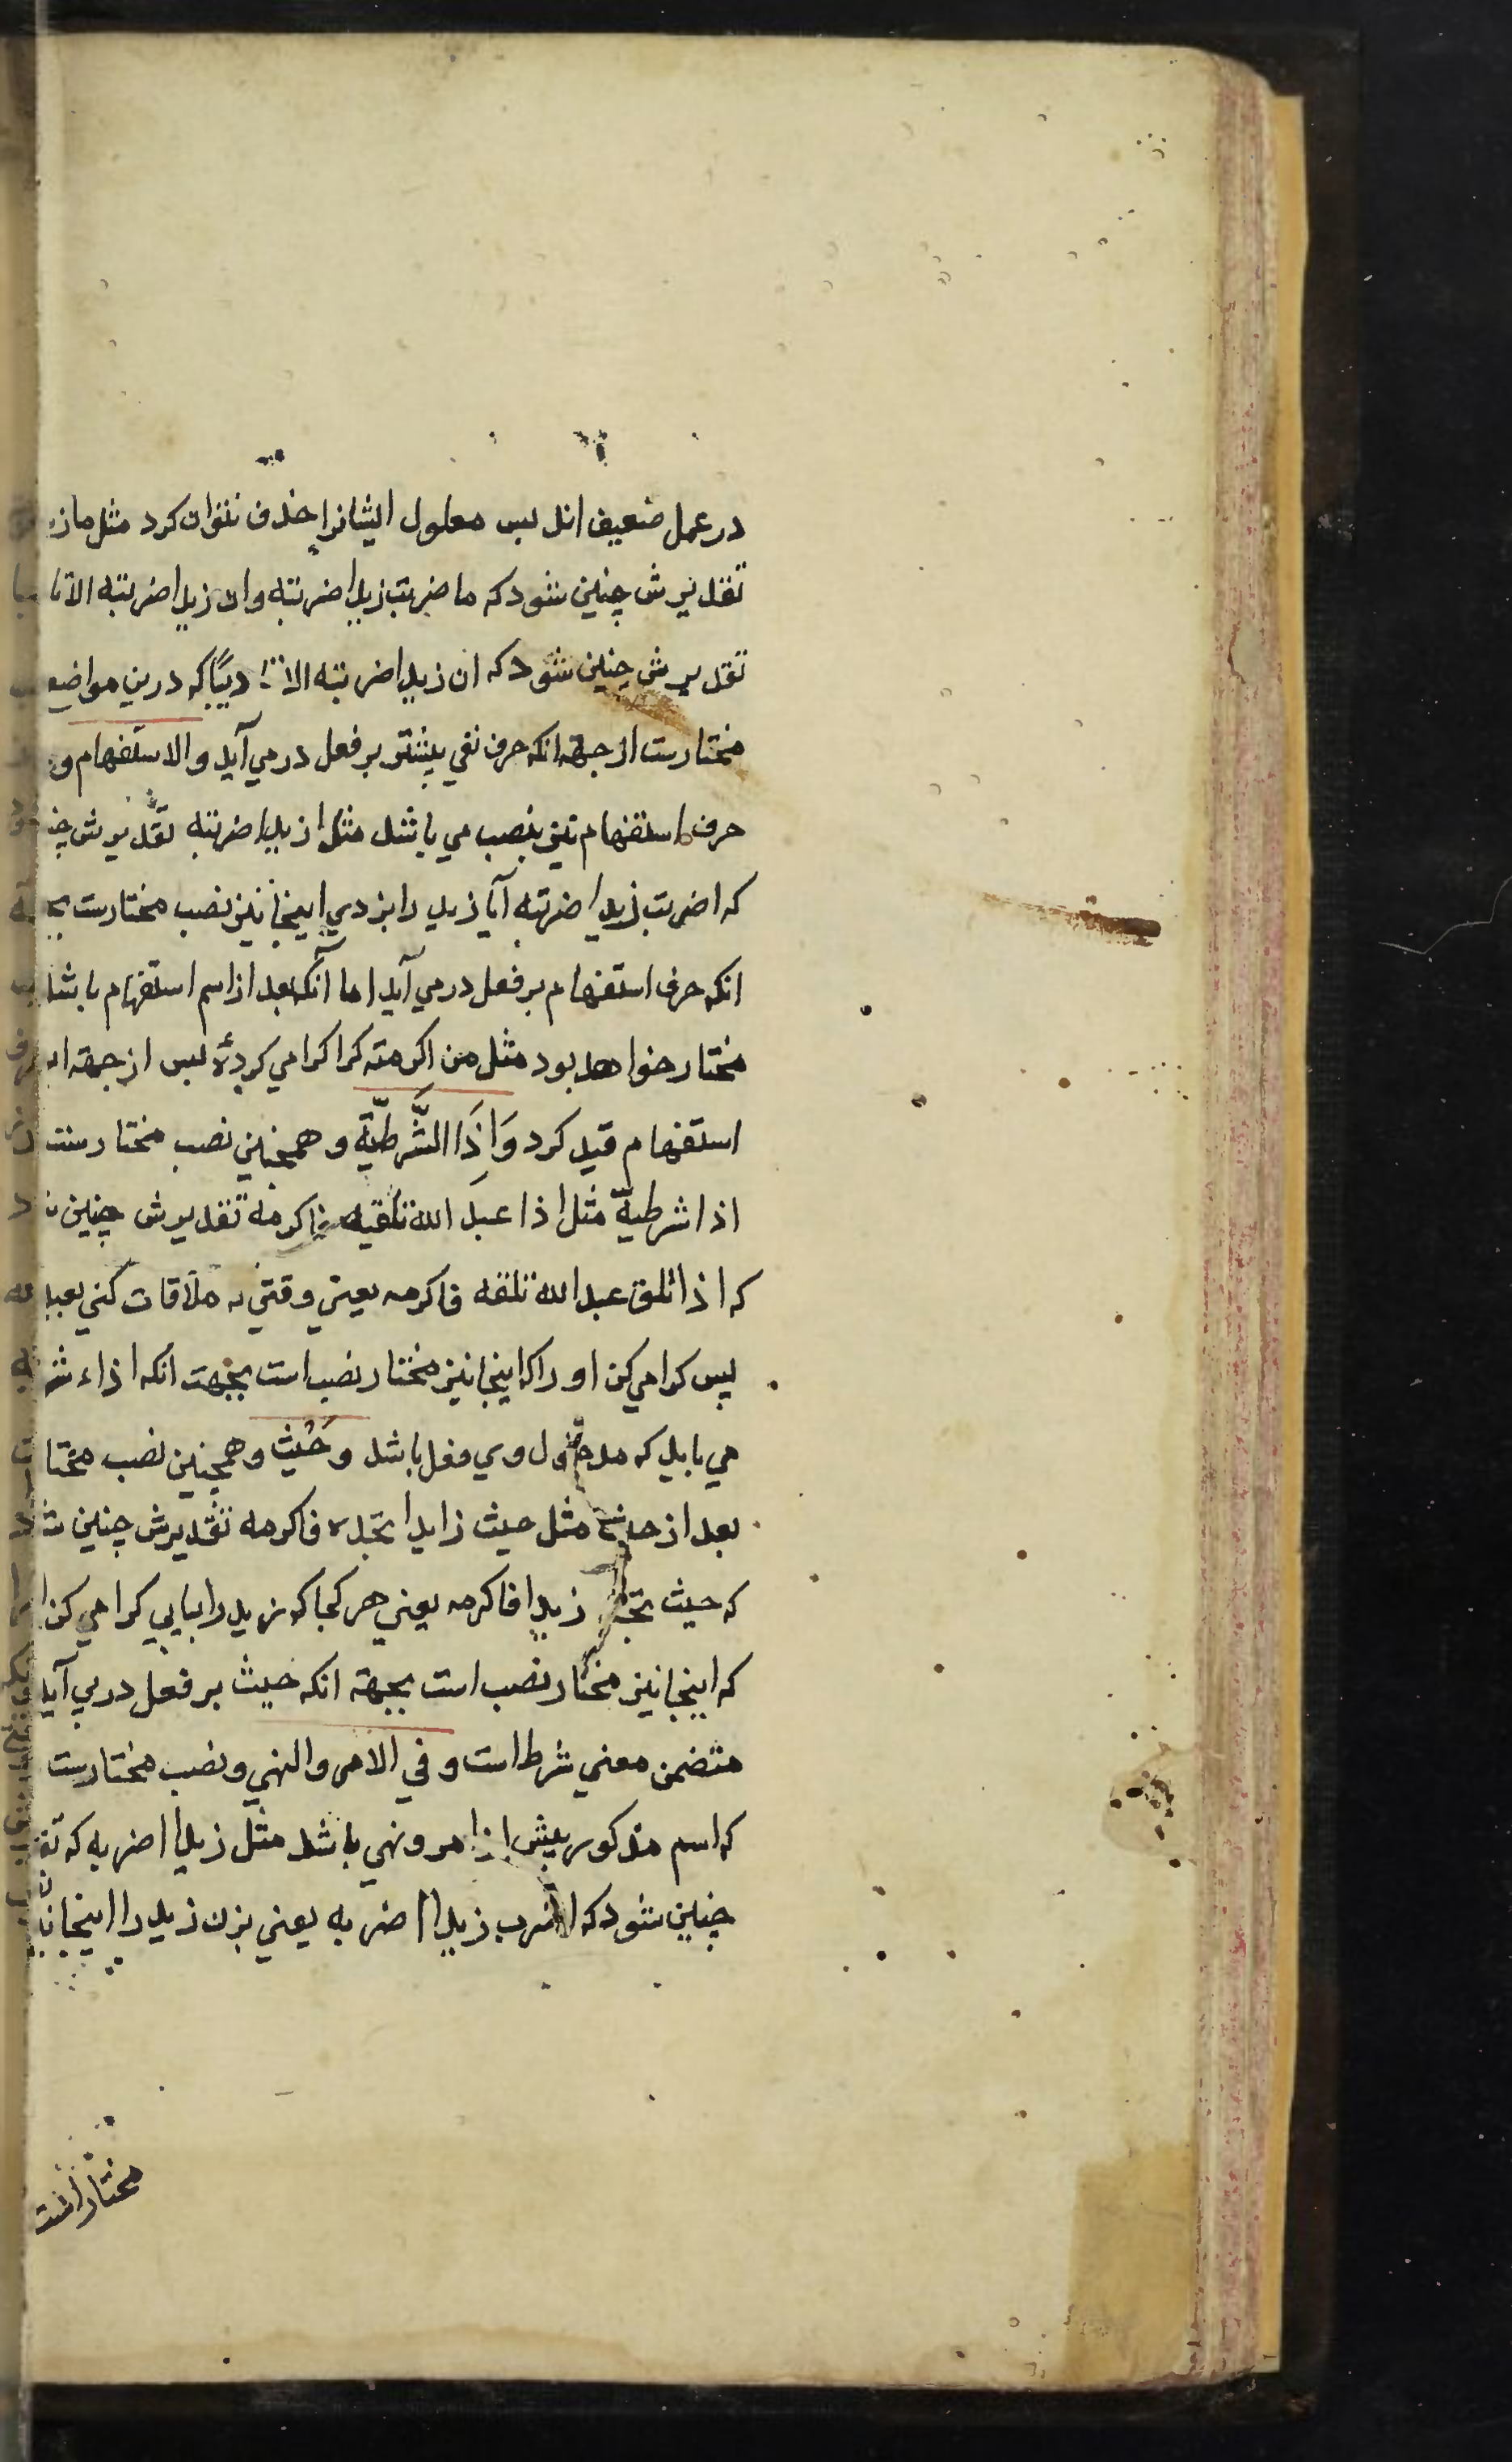 در عمل ضعیف اند پس معلول ایشانرا حذف نتوان کرد مثل ما
تقدیرش چنین شود که ما ضربت زیدا ضربته وان زیدا ضربته الا
تقدیرش چنین شود که ان زیدا ضربته الا که درین مواضع
مختارست از جهه انکه حرف نفي بیشتر بر فعل در مي آید والاستفهام و
حرف استفهام نیز بنصب مي باشد مثل ازیدا ضربته تقدیرش
که اضربت زیدا ضربته آیا زید را بزدي اینجا نیز نصب مختارست
انکه حرف استفهام بر فعل در مي آید اما آنکه بعد از اسم استفهام باشد
مختار خواهد بود مثل من اکرمته کرا کرامي کردۀ پس از جهة
استفهام قید کرد وَاِذَا الشَّرطیّة و همچنین نصب مختارست
اذا شرطیّة مثل اذا عبدَ الله تلقیه فاکرمه تقدیرش چنین
که اذا تلق عبد الله تلقه فاکرمه یعني وقتي که ملاقات کني بعبد الله
پس کرامي کن او را که اینجا نیز مختار نصب است بجهت انکه اذاء
مي باید که مدخول وي فعل باشد وحَیْث وهمچنین نصب
بعد از حیث مثل حیث زیدا تجده فاکرمه تقدیرش چنین
که حیث تجد زیدا فاکرمه یعني هر کجا که زید را بیابي کرامي کن
که اینجا نیز مختار نصب است بجهة انکه حیث بر فعل در مي آید
متضمن معني شرط است وفي الامر والنهي ونصب مختارست
که اسم مذکور پیش از امر ونهي باشد مثل زیدا اضربه که
چنین شود که اضرب زیدا اضربه یعني بزن زید را اینجا
مختار است